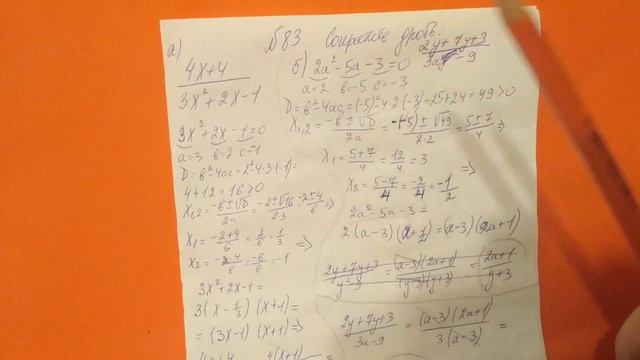 №83 Сократите дробь:
а)
4x+4
3x²+2x-1
3x²+2x-1=0
a=3 b=2 c=-1
D=b²-4ac=2²-4·3·(-1)=
4+12=16>0
x1,2=-b±√D/2a=-2±√16/2·3=-2±4/6=>
x1=-2+4/6=2/6=1/3 =>
x2=-2-4/6=-6/6=-1
3x²+2x-1=
3(x-1/3)(x+1)=
=(3x-1)(x+1)=>
4x+4
б) 2a²-5a-3=0
2y+7y+3
3a-9
a=2 b=-5 c=-3
D=b²-4ac=(-5)²-4·2·(-3)=25+24=49>0
x1,2=-b±√D/2a=-(-5)±√49/2·2=5±7/4=>
x1=5+7/4=12/4=3 =>
x2=5-7/4=-2/4=-1/2
2a²-5a-3=
2(a-3)(a+1/2)=(a-3)(2a+1)
2y+7y+3/y²-3=(a-3)(2a+1)/(y-3)(y+3)=2a+1/y+3
2y+7y+3/3a-9=(a-3)(2a+1)/3(a-3)=